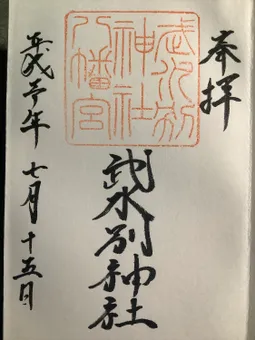 奉拝
武水別
神社
八幡宮
武水別神社
年七月十五日